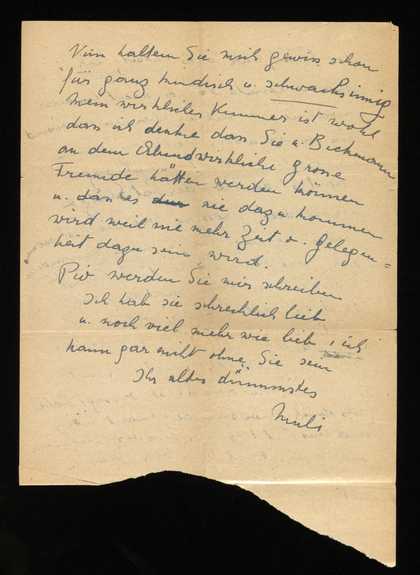 Nun halten Sie mich gewiss schon
für ganz kindisch u. schwachsinnig
Mein wirklicher Kummer ist wohl
dass ich denke dass Sie u. Beckmann
an dem Abend wirkliche grosse
Freunde hätten werden können
u. dass es nie dazu kommen
wird weil nie mehr Zeit u. Gelegen=
heit dazu sein wird.
werden Sie mir schreiben
Ich hab sie schrecklich lieb
u. noch viel mehr wie lieb, ich
kann gar nicht ohne Sie sein
Ihr altes dümmstes